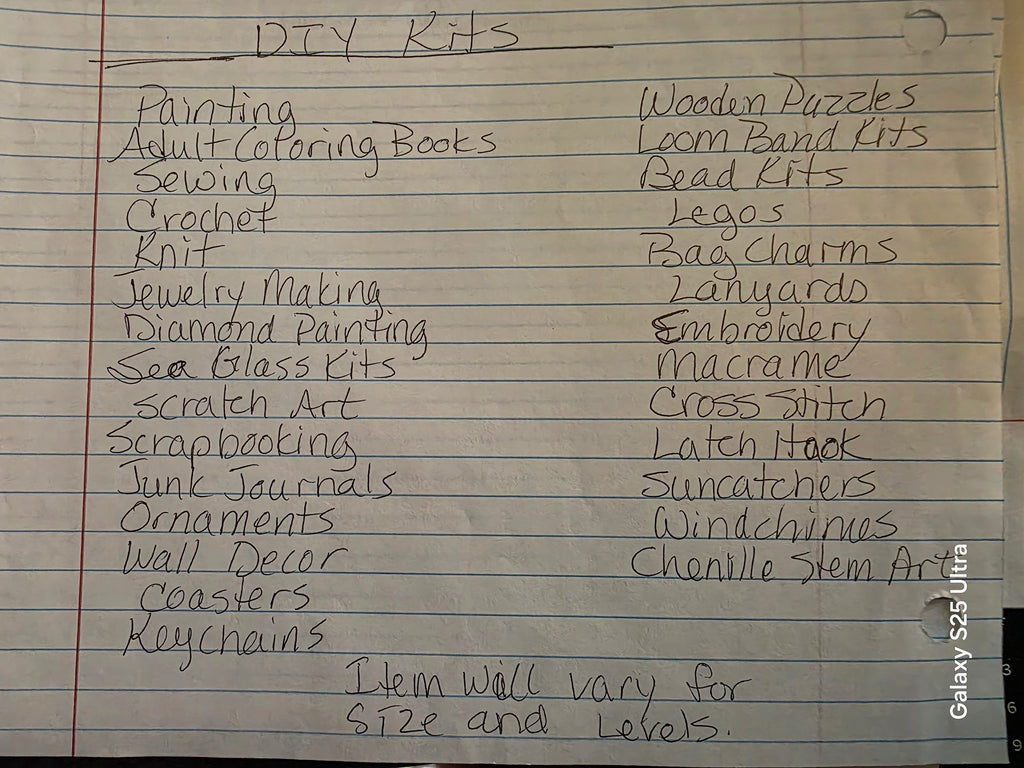 DIY Kits
Painting
Adult Coloring Books
Sewing
Crochet
Knit
Jewelry Making
Diamond Painting
Sea Glass Kits
Scratch Art
Scrapbooking
Junk Journals
Ornaments
Wall Decor
Coasters
Keychains
Wooden Puzzles
Loom Band Kits
Bead Kits
Legos
Bag Charms
Lanyards
Embroidery
Macrame
Cross Stitch
Latch Hook
Suncatchers
Windchimes
Chenille Stem Art
Item will vary for
Size and Levels.
Galaxy S25 Ultra
3
6
9